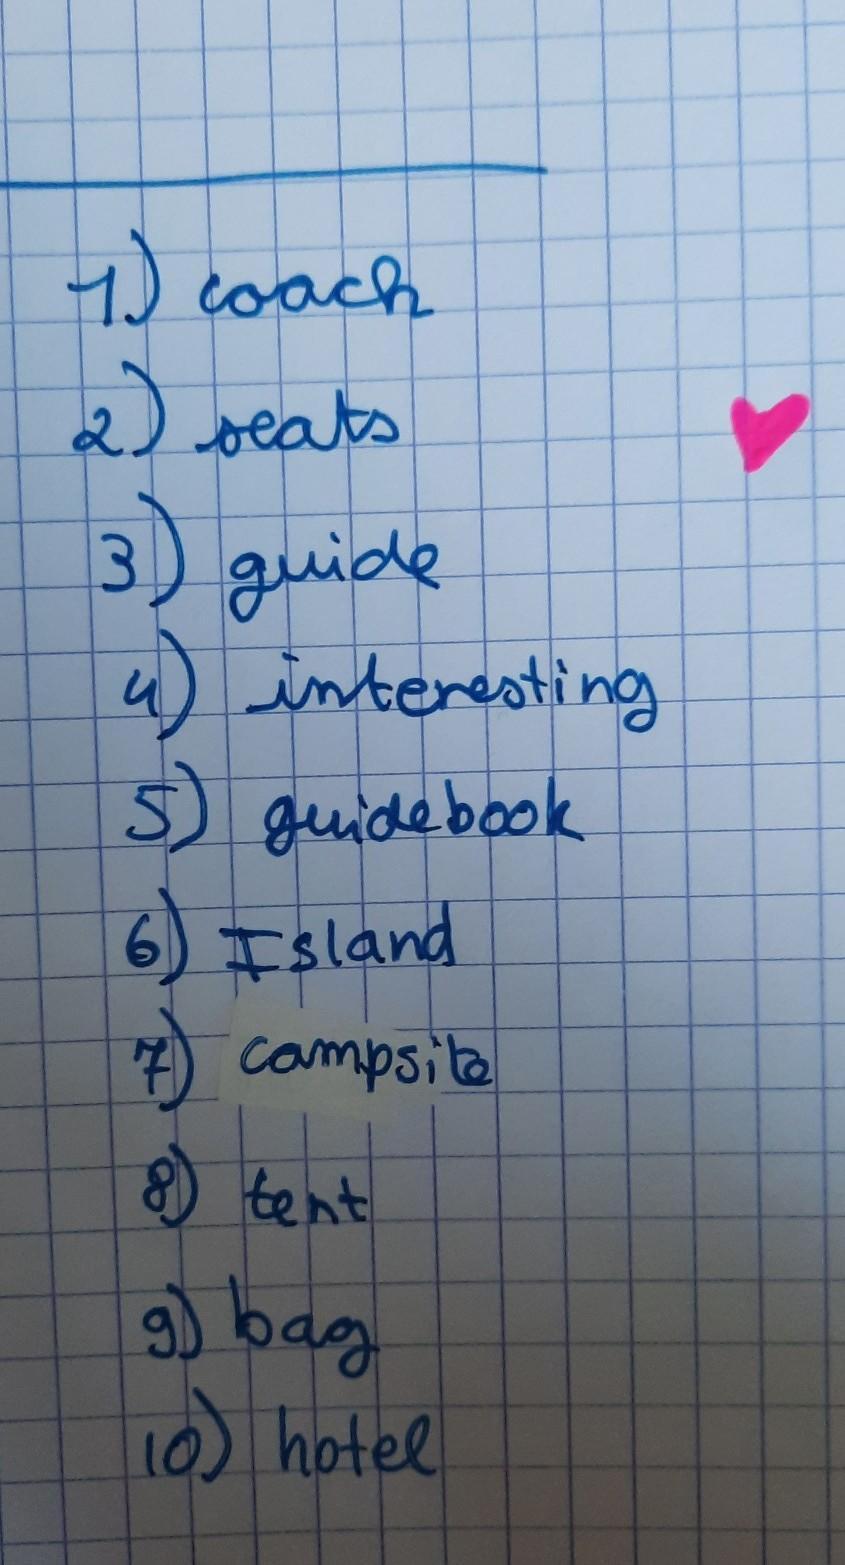 1) coach
2) seats
3) guide
4) interesting
5) guidebook
6) Island
7) campsite
8) tent
9) bag
10) hotel